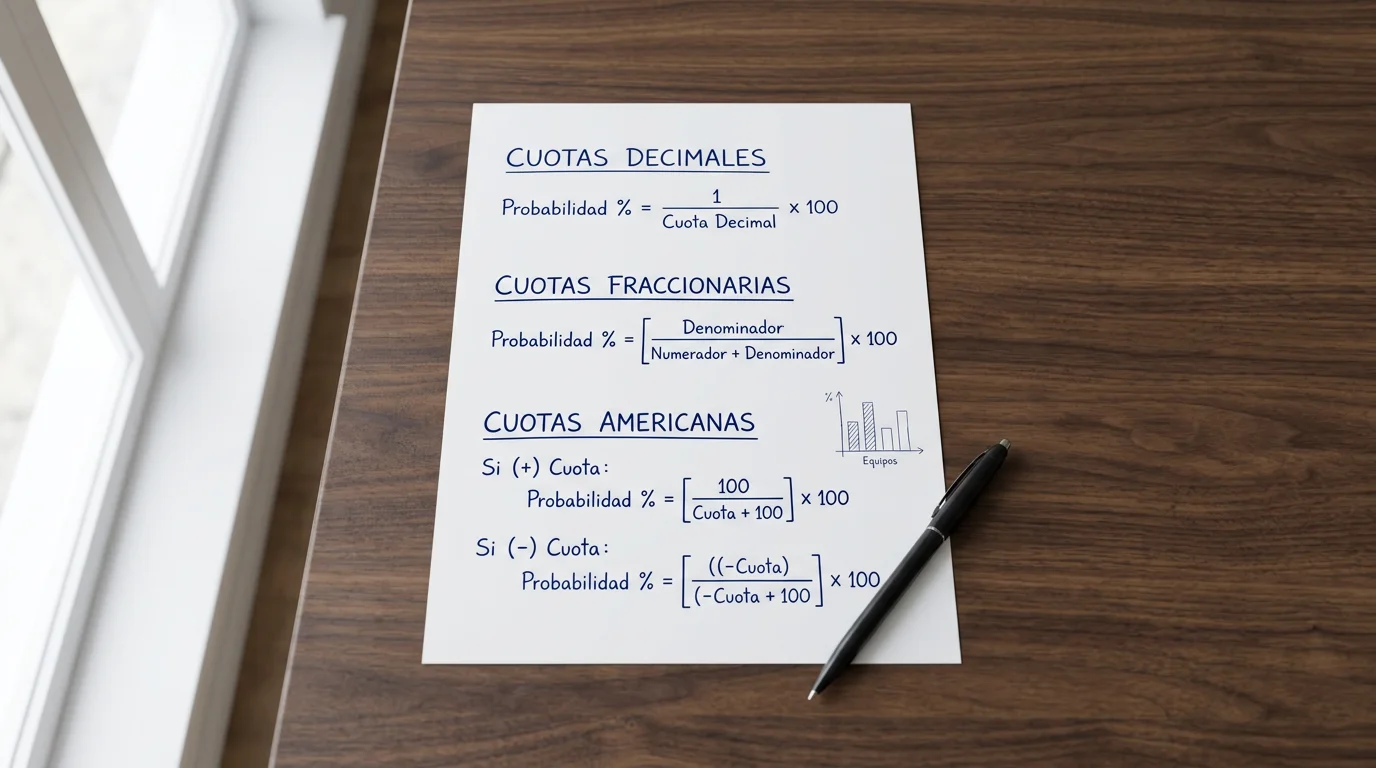 CUOTAS DECIMALES
Probabilidad % = 1 / Cuota Decimal x 100
CUOTAS FRACCIONARIAS
Probabilidad % = [Denominador / Numerador + Denominador] x 100
CUOTAS AMERICANAS
%
Equipos
Si (+) Cuota:
Probabilidad % = [100 / Cuota + 100] x 100
Si (-) Cuota:
Probabilidad % = [((-Cuota) / (-Cuota + 100] x 100